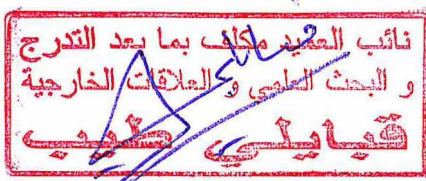 نائب العميد مكلف بما بعد التدرج
و البحث العلمي و العلاقات الخارجية
قبايلي طيب